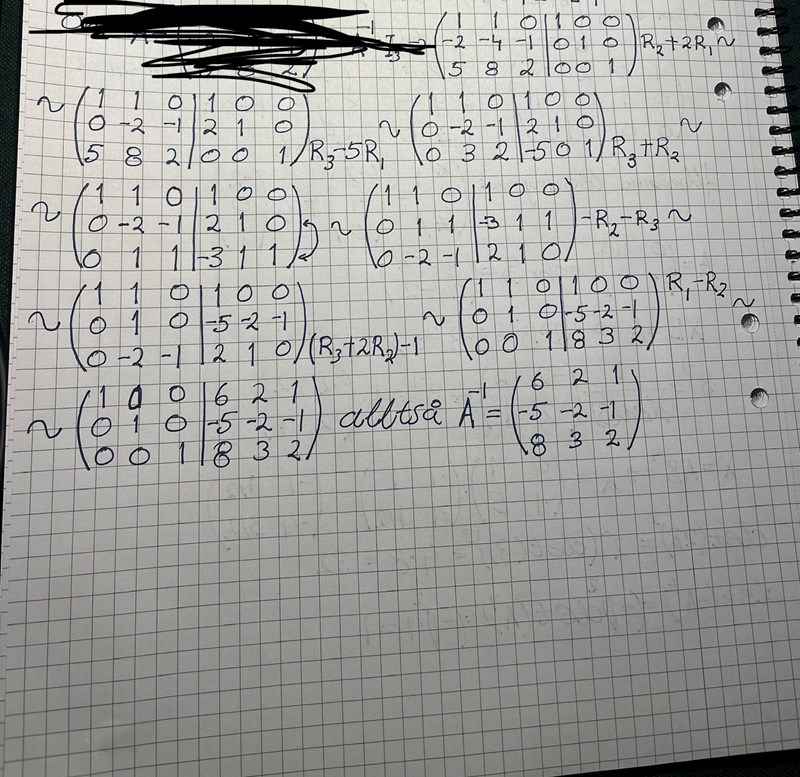 → ( 1 1 0 | 1 0 0 ; -2 -4 -1 | 0 1 0 ; 5 8 2 | 0 0 1 ) R₂+2R₁ ~
~ ( 1 1 0 | 1 0 0 ; 0 -2 -1 | 2 1 0 ; 5 8 2 | 0 0 1 ) R₃-5R₁ ~ ( 1 1 0 | 1 0 0 ; 0 -2 -1 | 2 1 0 ; 0 3 2 | -5 0 1 ) R₃+R₂ ~
~ ( 1 1 0 | 1 0 0 ; 0 -2 -1 | 2 1 0 ; 0 1 1 | -3 1 1 ) ~ ( 1 1 0 | 1 0 0 ; 0 1 1 | -3 1 1 ; 0 -2 -1 | 2 1 0 ) -R₂-R₃ ~
~ ( 1 1 0 | 1 0 0 ; 0 1 0 | -5 -2 -1 ; 0 -2 -1 | 2 1 0 ) (R₃+2R₂)-1 ~ ( 1 1 0 | 1 0 0 ; 0 1 0 | -5 -2 -1 ; 0 0 1 | 8 3 2 ) R₁-R₂ ~
~ ( 1 0 0 | 6 2 1 ; 0 1 0 | -5 -2 -1 ; 0 0 1 | 8 3 2 ) alltså A⁻¹ = ( 6 2 1 ; -5 -2 -1 ; 8 3 2 )